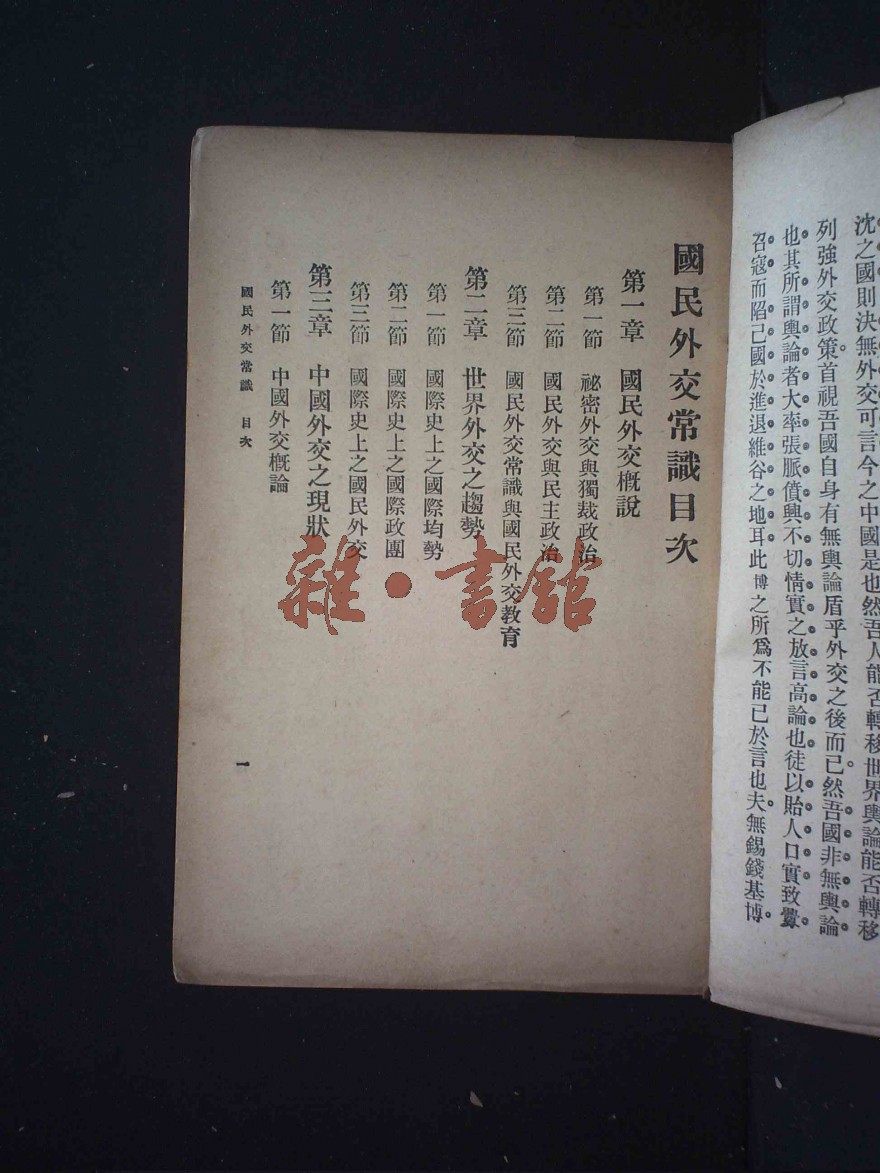 沈之國則決無外交可言今之中國是也然吾人能否轉移世界輿論能否轉移
列強外交政策首視吾國自身有無輿論盾乎外交之後而已然吾國非無輿論
也其所謂輿論者大率張脈僨興不切情實之放言高論也徒以貽人口實致釁
召寇而陷己國於進退維谷之地耳此博之所爲不能已於言也夫無錫錢基博
國民外交常識目次
第一章 國民外交槪說
第一節 祕密外交與獨裁政治
第二節 國民外交與民主政治
第三節 國民外交常識與國民外交敎育
第二章 世界外交之趨勢
第一節 國際史上之國際均勢
第二節 國際史上之國際政團
第三節 國際史上之國民外交
第三章 中國外交之現狀
第一節 中國外交槪論
國民外交常識 目次
一
雜·書館